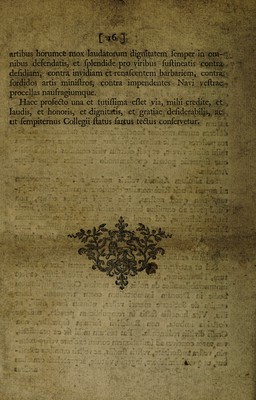 [ 26 ]
artibus horumce mox laudatorum dignitatem semper in om-
nibus defendatis, et splendide pro viribus sustineatis contra
desidiam, contra invidiam et renascentem barbariem, contra
sordidos artis ministros, contra impendentes Navi vestrae
procellas naufragiumque.
Haec profecto una et tutissima esset via, mihi credite, et
laudis, et honoris, et dignitatis, et gratiae desiderabilis, ac
ut sempiternus Collegii status sartus tectus conservetur.